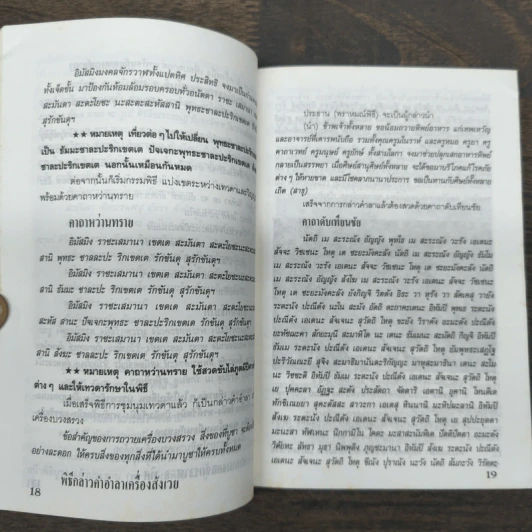 อิมัสมิงมงคลจักรวาฬทั้งแปดทิศ ประสิทธิ จงมาเป็นกำแพง
ทั้งเจ็ดชั้น มาป้องกันห้อมล้อมรอบครอบทั่วอนัตตา ราชะ เสมานา
สะมันตา สะตะโยชะ นะสะตะสะหัสสานิ พุทธะ ชาละปะริกเขตเต
สุรักขันตุ
★★ หมายเหตุ เที่ยวต่อๆ ไปให้เปลี่ยน พุทธะชาละปะริกเขตเต
เป็น ธัมมะชาละปะริกเขตเต ปัจเจกะพุทธะชาละปะริกเขตเต
ชาละปะริกเขตเต นอกนั้นเหมือนกันหมด
ต่อจากนั้นก็เริ่มกรรมพิธี แบ่งเขตระหว่างเทวดาและ
พร้อมด้วยคาถาหว่านทราย
คาถาหว่านทราย
อิมัสมิง ราชะเสมานา เขตเต สะมันตา สะตะโยชะนะ
สานิ พุทธะ ชาละปะ ริกเขตเต รักขันตุ สุรักขันตุฯ
อิมัสมิง ราชะเสมานา เขตเต สะมันตา สะตะโยชะนะ
สานิ ธัมมะ ชาละปะ ริกเขตเต รักขันตุ สุรักขันตุฯ
อิมัสมิง ราชะเสมานา เขตเต สะมันตา สะตะโยชะนะ
สะหัส สานะ ปัจเจกะพุทธะ ชาละปะริกเขตเต รักขันตุ สุรักขันตุฯ
อิมัสมิง ราชะเสมานา เขตเต สะมันตา สะตะโยชะนะ
สานิ สังฆะ ชาละปะ ริกเขตเต รักขันตุ สุรักขันตุฯ
★★ หมายเหตุ คาถาหว่านทราย ใช้สวดขับไล่ภูตผีปีศาจ
ต่าง ๆ และให้เทวดารักษาในพิธี
เมื่อเสร็จพิธีการชุมนุมเทวดาแล้ว ก็เป็นกล่าวคำอำลา
เครื่องบวงสรวง
ข้อสำคัญของการถวายเครื่องบวงสรวง สิ่งของที่บูชา
อย่างละดอก ให้ครบสิ่งของทุกสิ่งที่ได้นำมาบูชาให้ครบทั้งหมด
พิธีกล่าวคำอำลาเครื่องสังเวย
18
ประธาน (พราหมณ์พิธี) จะเป็นผู้กล่าวนำ
(นำ) ข้าพเจ้าทั้งหลาย ขอน้อมถวายทิพย์อาหาร แก่เทพเทวัญ
และอาจารย์ที่เคารพนับถือ รวมทั้งคุณครูโบราฬ และครูหมอ ครูยา ครู
คาถาเวทย์ ครูมนุษย์ ครูยักษ์ ทั้งสามโลกา จงมาช่วยปลุกเสกอาหารทิพย์
กลายเป็นสรรพยา เมื่อศิษย์สานุศิษย์ทั้งหลายรับประทาน จะได้ขอมาบริโภคแก้โรคภัย
ต่าง ๆ ให้หายขาด และมีโชคลาภนานาประการ ขอเป็นทานกับศิษย์ทั้งหลาย
เถิด (สาธุ)
เสร็จจากการกล่าวคำลาแล้วต้องสวดด้วยคาถาดับเทียนชัย
คาถาดับเทียนชัย
นัตถิ เม สะระณัง อัญญัง พุทโธ เม สะระณัง วะรัง เอเตนะ
สัจจะ วัชเชนะ โหตุ เต ชะยะมังคะลัง นัตถิ เม สะระณัง อัญญัง ธัมโม
เม สะระณัง วะรัง เอเตนะ สัจจะ วัชเชนะ โหตุ เต ชะยะมังคะลัง นัตถิ
เม สะระณัง อัญญัง สังโฆ เม สะระณัง วะรัง เอเตนะ สัจจะ วัชเชนะ
โหตุ เต ชะยะมังคะลัง ยังกิญจิ วิตตัง อิธะ วา หุรัง วา สัคเคสุ วายัง
ระตะนัง ปะณีตัง นะโน สะมัง อัตถิ ตะถาคะเตนะ อิทัมปิ พุทเธ ระตะนัง
ปะณีตัง เอเตนะ สัจเจนะ สุวัตถิ โหตุ ขะยัง วิราคัง อะมะตัง ปะณีตัง
ยะทัชฌะคา สักยะมุนี สะมาหิโต นะ เตนะ ธัมเมนะ สะมัตถิ กิญจิ อิทัมปิ
ธัมเม ระตะนัง ปะณีตัง เอเตนะ สัจเจนะ สุวัตถิ โหตุ ยัมพุทธะเสฏโฐ
ปะริวัณณะยี สุจิง สะมาธิมานันตะริกัญญะ มาหุสะมาธินา เตนะ สะโม
นะ วิชชะติ อิทัมปิ ธัมเม ระตะนัง ปะณีตัง เอเตนะ สัจเจนะ สุวัตถิ โหตุ
เย ปุคคะลา อัฏฐะ สะตัง ประสัตถา จัตตาริ เอตานิ ยุคานิ โหนติเต
ทักขิเณยยา สุคะตัสสะ สาวะกา เอเตสุ ทินนานิ มะหัปผะลานิ อิทัมปิ
สังเฆ ระตะนัง ปะณีตัง เอเตนะ สัจเจนะ สุวัตถิ โหตุ เย สุปปะยุตตา
มะนะสา ทัฬเหนะ นิกกามิโน โคตะ มะสาสะนัมหิเต ปัตติปัตตา อะมะตัง
วิคัยหะ ลัทธา มุธา นิพพุติง ภุญชะมานา อิทัมปิ สังเฆ ระตะนัง ปะณีตัง
เอเตนะ สัจเจนะ สุวัตถิ โหตุ ขีณัง ปุราณัง นะวัง นัตถิ สัมภะวัง วิรัตตะ-
19